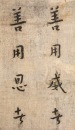 善用威者
善用恩者